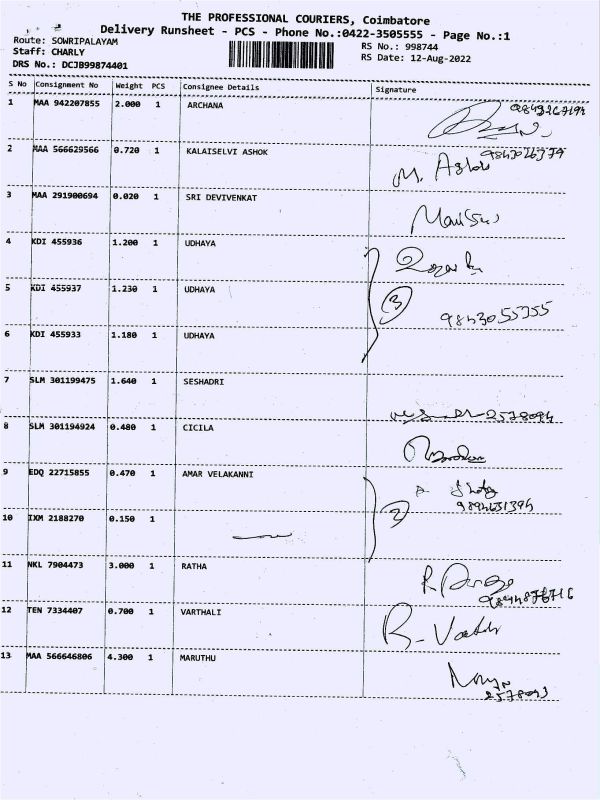 THE PROFESSIONAL COURIERS, Coimbatore
Delivery Runsheet - PCS - Phone No.:0422-3505555 - Page No.:1
Route: SOWRIPALAYAM RS No.: 998744
Staff: CHARLY RS Date: 12-Aug-2022
DRS No.: DCJB99874401
S No Consignment No Weight PCS Consignee Details Signature
1 MAA 942207855 2.000 1 ARCHANA
2 MAA 566629566 0.720 1 KALAISELVI ASHOK
M. Ashok
3 MAA 291900694 0.020 1 SRI DEVIVENKAT
4 KDI 455936 1.200 1 UDHAYA
5 KDI 455937 1.230 1 UDHAYA 3
9843055355
6 KDI 455933 1.180 1 UDHAYA
7 SLM 301199475 1.640 1 SESHADRI
2578094
8 SLM 301194924 0.480 1 CICILA
9 EDQ 22715855 0.470 1 AMAR VELAKANNI
9894631394
10 IXM 2188270 0.150 1 2
11 NKL 7904473 3.000 1 RATHA
12 TEN 7334407 0.700 1 VARTHALI
13 MAA 566646806 4.300 1 MARUTHU
2578093